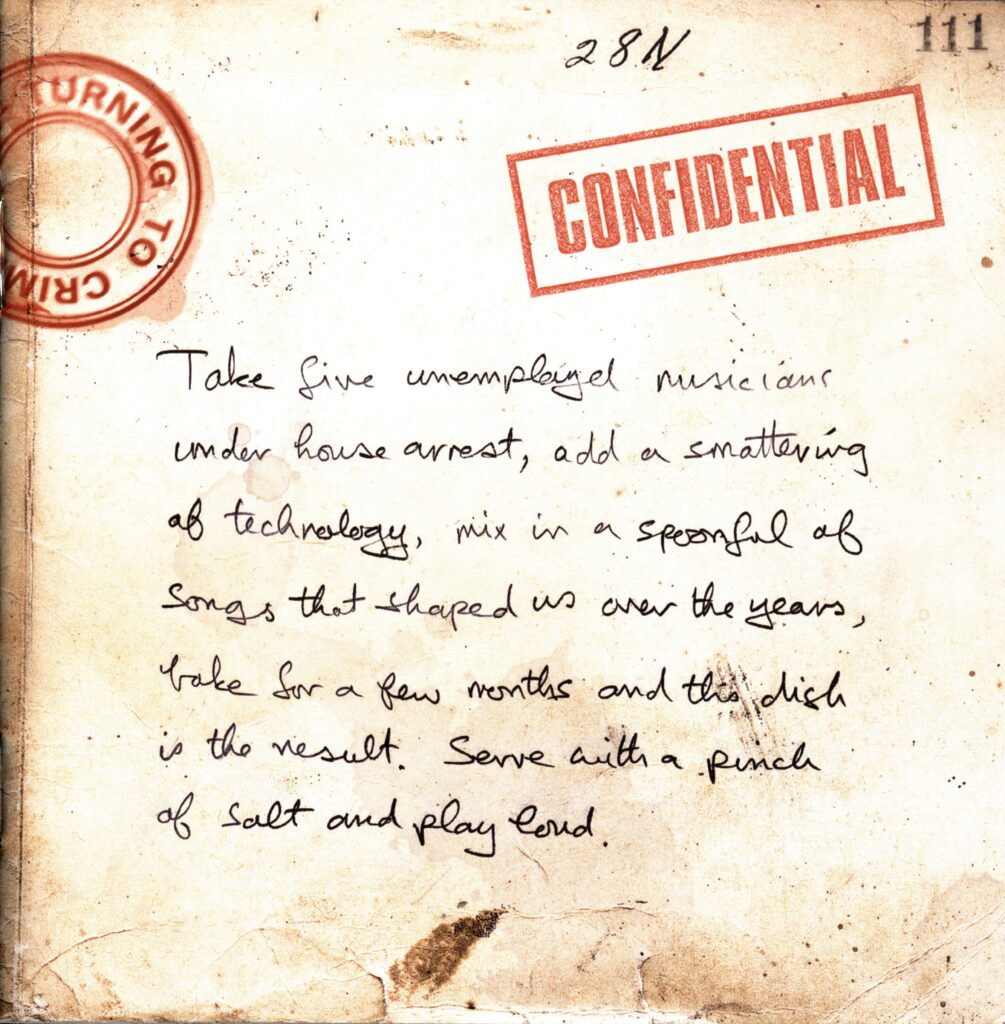 28N
111
TURNING TO CRIM
CONFIDENTIAL
Take five unemployed musicians
under house arrest, add a smattering
of technology, mix in a spoonful of
songs that shaped us over the years,
bake for a few months and this dish
is the result. Serve with a pinch
of salt and play loud.